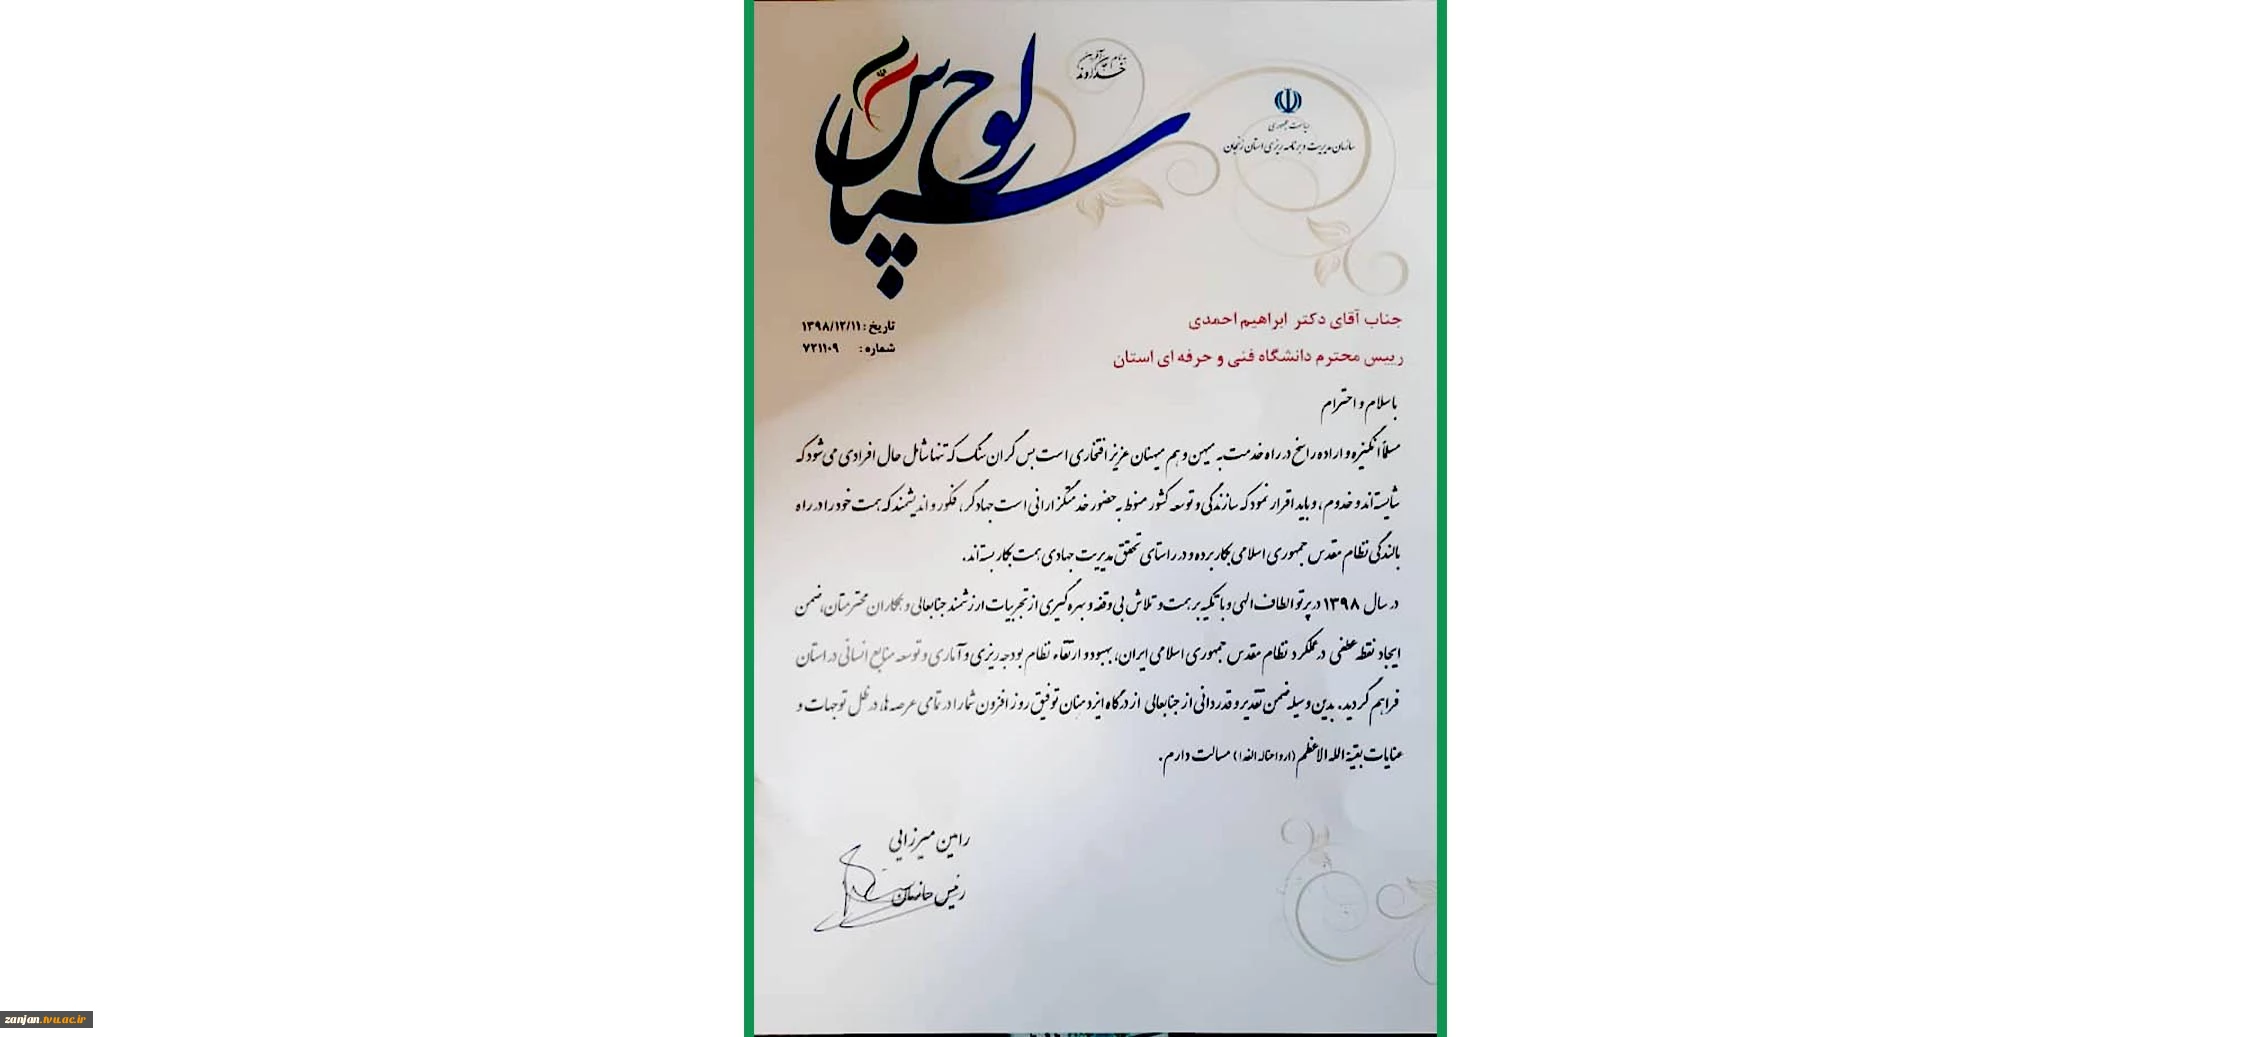 به نام خداوند جان آفرین
لوح سپاس
ریاست جمهوری
سازمان مدیریت و برنامه ریزی استان زنجان
تاریخ : ۱۳۹۸/۱۲/۱۱
شماره : ۷۲۱۱۰۹
جناب آقای دکتر ابراهیم احمدی
رییس محترم دانشگاه فنی و حرفه ای استان
با سلام و احترام
مسلماً انگیزه و اراده راسخ در راه خدمت به میهن و هم میهنان عزیز افتخاری است بس گران سنگ که تنها شامل حال افرادی می شود که
شایسته اند و خدوم، و باید اقرار نمود که سازندگی و توسعه کشور منوط به حضور خدمتگزارانی است جهادگر، فکور و اندیشمند که همت خود را در راه
بالندگی نظام مقدس جمهوری اسلامی بکار برده و در راستای تحقق مدیریت جهادی همت بکار بسته اند.
در سال ۱۳۹۸ در پرتو الطاف الهی و با تکیه بر همت و تلاش بی وقفه و بهره گیری از تجربیات ارزشمند جنابعالی و همکاران محترمتان، ضمن
ایجاد نقطه عطفی در عملکرد نظام مقدس جمهوری اسلامی ایران، بهبود و ارتقاء نظام بودجه ریزی و آماری و توسعه منابع انسانی در استان
فراهم گردید. بدین وسیله ضمن تقدیر و قدردانی از جنابعالی از درگاه ایزد منان توفیق روز افزون شما را در تمامی عرصه ها، در ظل توجهات و
عنایات بقیة الله الاعظم (ارواحناله الفدا) مسالت دارم.
رامین میرزایی
رئیس سازمان
zanjan.tvu.ac.ir